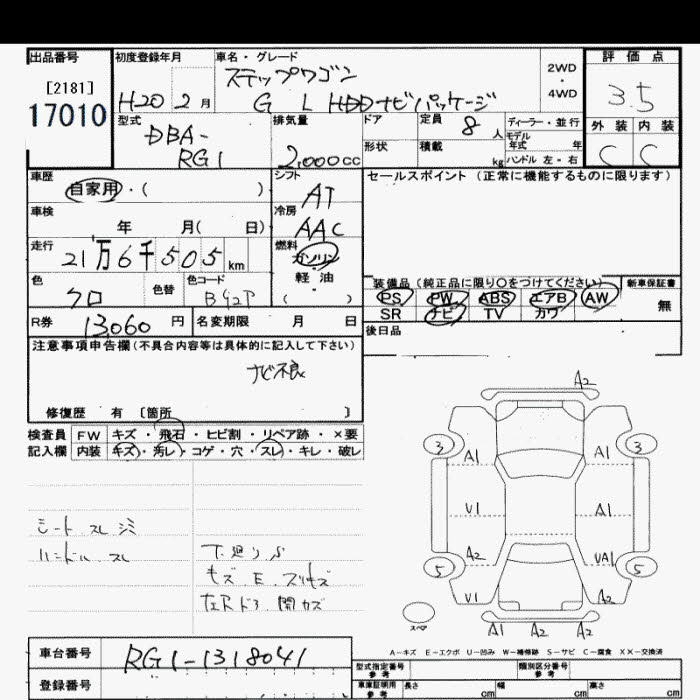 出品番号
[2181]
17010
初度登録年月
H20 2 月
車名・グレード
ステップワゴン
G L HDDナビパッケージ
2WD
4WD
評価点
3.5
外装 内装
C C
型式
DBA-
RG1
排気量
2,000cc
ドア
形状
定員 8 人
積載 kg
ディーラー・並行
モデル年式 年
ハンドル 左・右
車歴
自家用・( )
車検
年 月( 日)
走行
21万6千505km
色
クロ
色替
色コード
B92P
シフト
AT
冷房
AAC
燃料
ガソリン
軽・油
( )
セールスポイント (正常に機能するものに限ります)
装備品 (純正品に限り○をつけてください)
PS PW ABS エアB AW
SR ナビ TV カワ
新車保証書
無
後日品
R券 13,060 円
名変期限 月 日
注意事項申告欄(不具合内容等は具体的に記入して下さい)
ナビ不良
修復歴 有 〔箇所 〕
検査員
記入欄
FW キズ・飛石・ヒビ割・リペア跡・×要
内装 キズ・汚レ・コゲ・穴・スレ・キレ・破レ
シート スレ シミ
ハンドル スレ
下廻りS
キズ E.スリキズ
左Rドア 開カズ
A2
3 A1 A1 3
U1 A1
A2 UA1
5 U1 A2 5
スペア
A1 A2 A2
A-キズ E-エクボ U-凹み W-補修跡 S-サビ C-腐食 XX-交換済
車台番号
RG1-1318041
登録番号
型式指定番号
参考
類別区分番号
参考
車庫証明用
参考
長さ cm
幅 cm
高さ cm